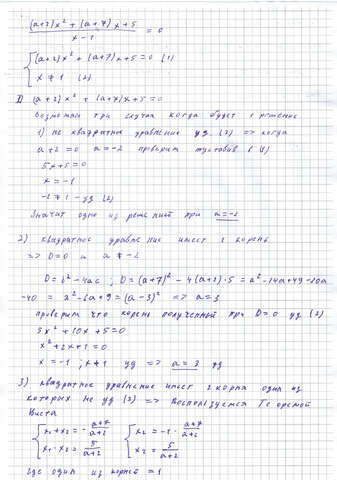 (a+2)x² + (a+7)x+5 / x-1 = 0
{ (a+2)x² + (a+7)x+5 = 0 (1)
x ≠ 1 (2)
1) (a+2)x² + (a+7)x+5=0
Возможны три случая когда будет 1 решение
1) не квадратное уравнение уд. (2) => когда
a+2=0 a=-2 проверим подставив в (1)
5x+5=0
x=-1
-1≠1 - уд (2)
Значит одно из решений при a=-2
2) квадратное уравнение имеет 1 корень
=> D=0 и a≠-2
D=b²-4ac ; D=(a+7)²-4(a+2)·5 = a²+14a+49-20a
-40 = a²-6a+9=(a-3)² => a=3
проверим что корень полученный при D=0 уд (2)
5x²+10x+5=0
x²+2x+1=0
x=-1 ; x≠1 уд => a=3 уд
3) квадратное уравнение имеет 2 корня один из
которых не уд (2) => Воспользуемся Теоремой
Виета
{ x₁+x₂=-a+7/a+2 { x₂=-1-a+7/a+2
x₁·x₂=5/a+2 x₂=5/a+2
где один из корней =1